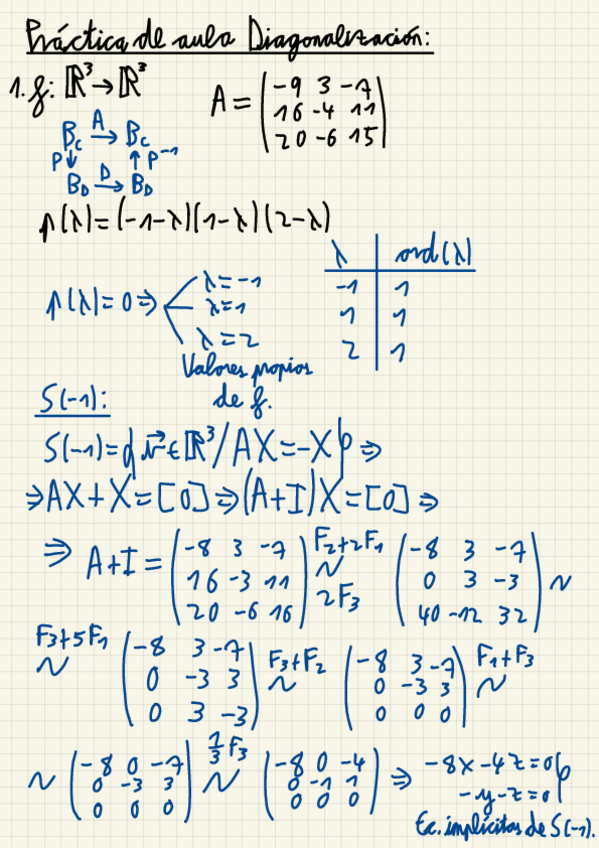 Práctica de aula Diagonalización:
1. f: ℝ³ → ℝ³
A = (-9 3 -7
16 -4 11
20 -6 15)
B_C A→ B_C
P↓ ↑P⁻¹
B_D D→ B_D
p(λ)=(-1-λ)(1-λ)(2-λ)
λ | ord(λ)
-1 | 1
1 | 1
2 | 1
p(λ)=0 ⇒ λ=-1
λ=1
λ=2
Valores propios
de f.
S(-1):
S(-1)={v⃗∈ℝ³/AX=-X} ⇒
⇒AX+X=[0]⇒(A+I)X=[0] ⇒
⇒ A+I = (-8 3 -7
16 -3 11
20 -6 16)
F₂+2F₁
~
2F₃
(-8 3 -7
0 3 -3
40 -12 32) ~
F₃+5F₁
~
(-8 3 -7
0 -3 3
0 3 -3)
F₃+F₂
~
(-8 3 -7
0 -3 3
0 0 0)
F₁+F₃
~
~ (-8 0 -7
0 -3 3
0 0 0)
1/3 F₃
~
(-8 0 -4
0 -1 1
0 0 0) ⇒ -8x-4z=0}
-y-z=0}
Ec. implícitas de S(-1).